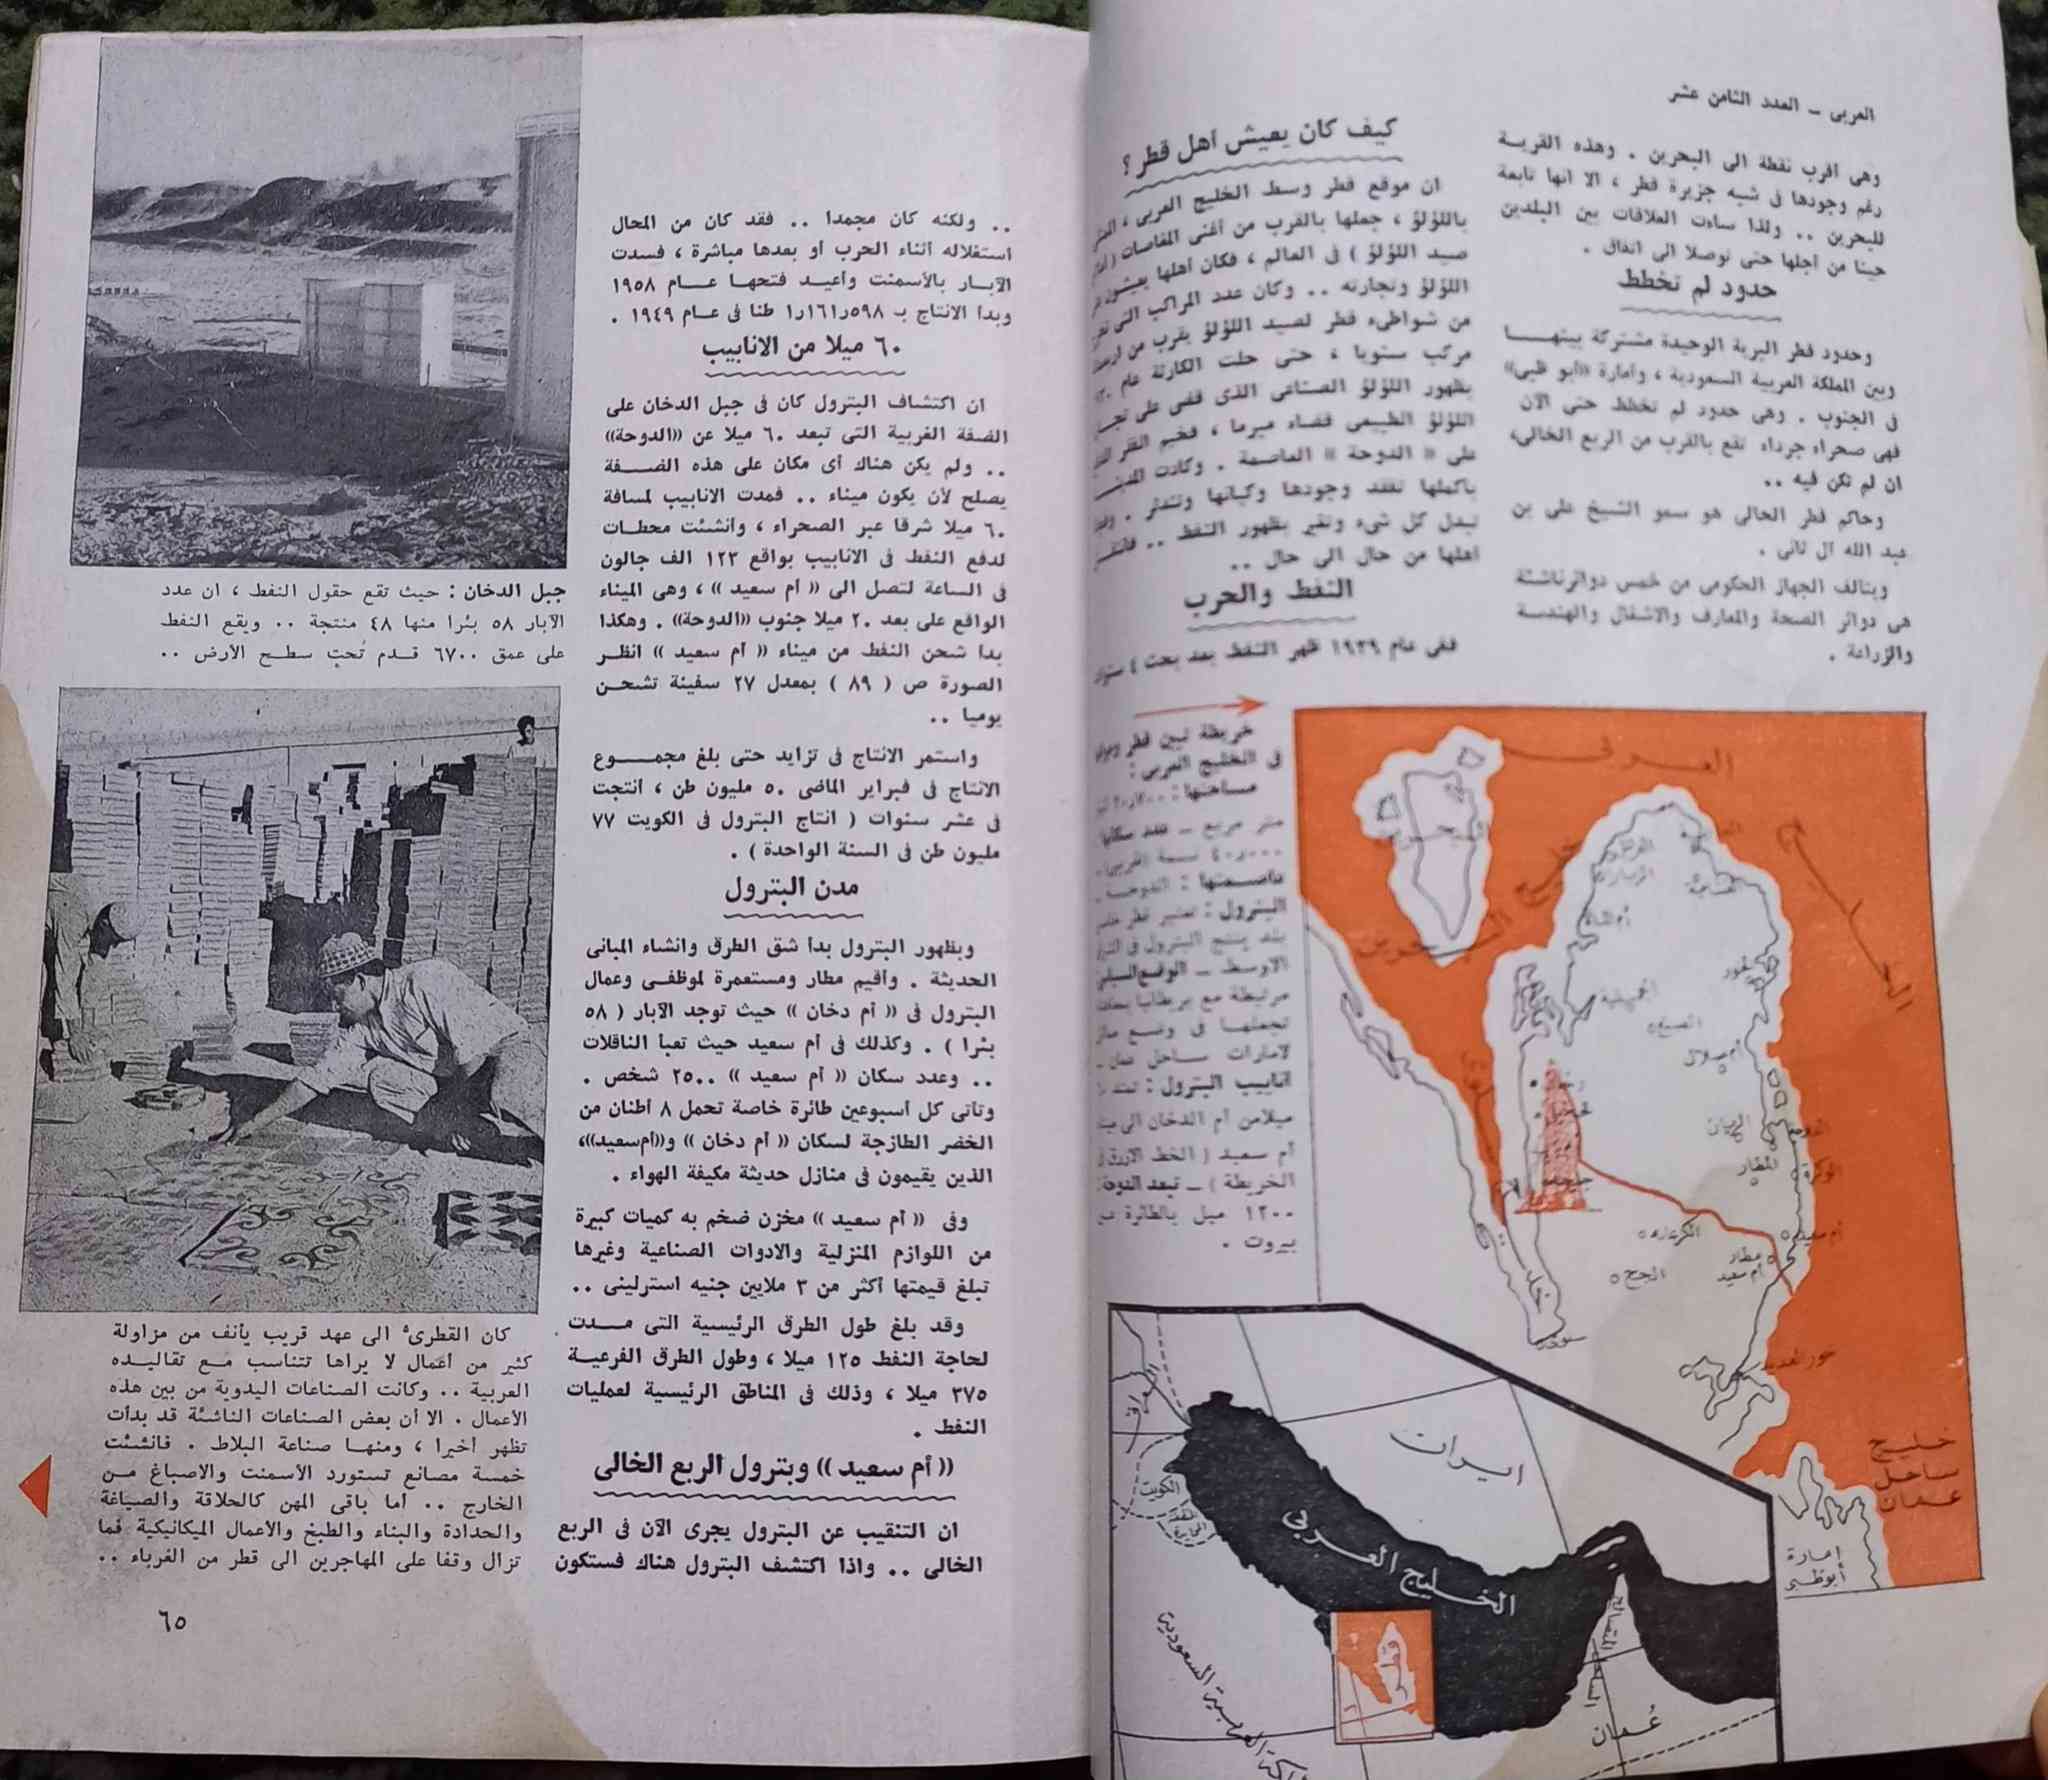 العربى – العدد الثامن عشر
وهى أقرب نقطة الى البحرين . وهذه القرية
رغم وجودها فى شبه جزيرة قطر ، الا أنها تابعة
للبحرين .. ولذا ساءت العلاقات بين البلدين
حينا من أجلها حتى توصلا الى اتفاق .
حدود لم تخطط
وحدود قطر البرية الوحيدة مشتركة بينهــا
وبين المملكة العربية السعودية ، وامارة «أبو ظبى»
فى الجنوب . وهى حدود لم تخطط حتى الآن
فهى صحراء جرداء تقع بالقرب من الربع الخالى،
ان لم تكن فيه ..
وحاكم قطر الحالى هو سمو الشيخ على بن
عبد الله آل ثانى .
ويتألف الجهاز الحكومى من خمس دوائر ناشئة
هى دوائر الصحة والمعارف والاشغال والهندسة
والزراعة .
كيف كان يعيش أهل قطر ؟
ان موقع قطر وسط الخليج العربى ،
باللؤلؤ ، جعلها بالقرب من أغنى المغاصات
صيد اللؤلؤ ) فى العالم ، فكان أهلها يعيشون
اللؤلؤ وتجارته .. وكان عدد المراكب التى
من شواطىء قطر لصيد اللؤلؤ يقرب من
مركب سنويا ، حتى حلت الكارثة عام
بظهور اللؤلؤ الصناعى الذى قضى على
اللؤلؤ الطبيعى قضاء مبرما ، فخيم الفقر
على « الدوحة » العاصمة . وكادت
بأكملها تفقد وجودها وكيانها وتندثر .
تبدل كل شىء وتغير بظهور النفط ..
أهلها من حال الى حال ..
النفط والحرب
ففى عام ١٩٣٩ ظهر النفط بعد بحث ٤
خريطة تبين قطر
فى الخليج العربى :
مساحتها :
متر مربع – عدد سكانها
٤٠٫٠٠٠ نسمة
عاصمتها : الدوحة .
البترول : تعتبر قطر
بلد ينتج البترول فى
الاوسط – الوقع
مرتبطة مع بريطانيا
تجعلها فى وضع
لامارات ساحل عمان –
أنابيب البترول : تمتد
ميلا من أم الدخان الى
أم سعيد ( الخط الازرق فى
الخريطة ) – تبعد الدوحة
١٢٠٠ ميل بالطائرة
بيروت .
العربى
البحرين
خليج البحرين
سلوى
أم الماء
الجميلية
الخور
أم صلال
دخان
الريان
المطار
الدوحة
الوكرة
الكرعانه
أم سعيد
مطار
أم سعيد
الجح
خور العديد
خليج
ساحل
عمان
امارة
أبو ظبى
العراق
الكويت
ايران
الخليج العربى
قطر
عُمان
المملكة العربية السعودية
.. ولكنه كان مجمدا .. فقد كان من المحال
استغلاله أثناء الحرب أو بعدها مباشرة ، فسدت
الآبـار بالأسمنت وأعيد فتحها عــام ١٩٥٨
وبدأ الانتاج بـ ١٫١٦١٫٥٩٨ طنا فى عـام ١٩٤٩ .
٦٠ ميلا من الانابيب
ان اكتشاف البترول كان فى جبل الدخان على
الضفة الغربية التى تبعد ٦٠ ميلا عن «الدوحة»
.. ولم يكن هناك أى مكان على هذه الضــفة
يصلح لأن يكون ميناء .. فمدت الانابيب لمسافة
٦٠ ميلا شرقا عبر الصحراء ، وانشئت محطات
لدفع النفط فى الانابيب بواقع ١٢٣ الف جالون
فى الساعة لتصل الى « أم سعيد » ، وهى الميناء
الواقع على بعد ٢٠ ميلا جنوب «الدوحة» . وهكذا
بدأ شحن النفط من ميناء « أم سعيد » انظر
الصورة ص ( ٨٩ ) بمعدل ٢٧ سفينة تشحـن
يوميا ..
واستمر الانتاج فى تزايد حتى بلغ مجمــوع
الانتاج فى فبراير الماضى ٥٠ مليون طن ، أنتجت
فى عشر سنوات ( انتاج البترول فى الكويت ٧٧
مليون طن فى السنة الواحدة ) .
مدن البترول
وبظهور البترول بدأ شق الطرق وانشاء المبانى
الحديثة . وأقيم مطار ومستعمرة لموظفى وعمال
البترول فى « أم دخان » حيث توجد الآبار ( ٥٨
بئرا ) . وكذلك فى أم سعيد حيث تعبأ الناقلات
.. وعدد سكان « أم سعيد » ٢٥٠٠ شخص .
وتأتى كل أسبوعين طائرة خاصة تحمل ٨ أطنان من
الخضر الطازجة لسكان « أم دخان » و«أم سعيد»،
الذين يقيمون فى منازل حديثة مكيفة الهواء .
وفى « أم سعيد » مخزن ضخم به كميات كبيرة
من اللوازم المنزلية والادوات الصناعية وغيرها
تبلغ قيمتها أكثر من ٣ ملايين جنيه استرلينى ..
وقد بلغ طول الطرق الرئيسية التى مــدت
لحاجة النفط ١٢٥ ميلا ، وطول الطرق الفرعية
٣٧٥ ميلا ، وذلك فى المناطق الرئيسية لعمليات
النفط .
« أم سعيد » وبترول الربع الخالى
ان التنقيب عن البترول يجرى الآن فى الربع
الخالى .. واذا اكتشف البترول هناك فستكون
جبل الدخان : حيث تقع حقول النفط ، ان عدد
الآبار ٥٨ بئرا منها ٤٨ منتجة .. ويقع النفط
على عمق ٦٧٠٠ قدم تحت سطح الأرض ..
كان القطرى الى عهد قريب يأنف من مزاولة
كثير من أعمال لا يراها تتناسب مع تقاليده
العربية .. وكانت الصناعات اليدوية من بين هذه
الأعمال . الا أن بعض الصناعات الناشئة قد بدأت
تظهر أخيرا ، ومنهـا صناعة البلاط . فانشئت
خمسة مصانع تستورد الأسمنت والاصباغ مـن
الخارج .. أما باقى المهن كالحلاقة والصياغة
والحدادة والبناء والطبخ والأعمال الميكانيكية فما
تزال وقفا على المهاجرين الى قطر من الغرباء ..
٦٥